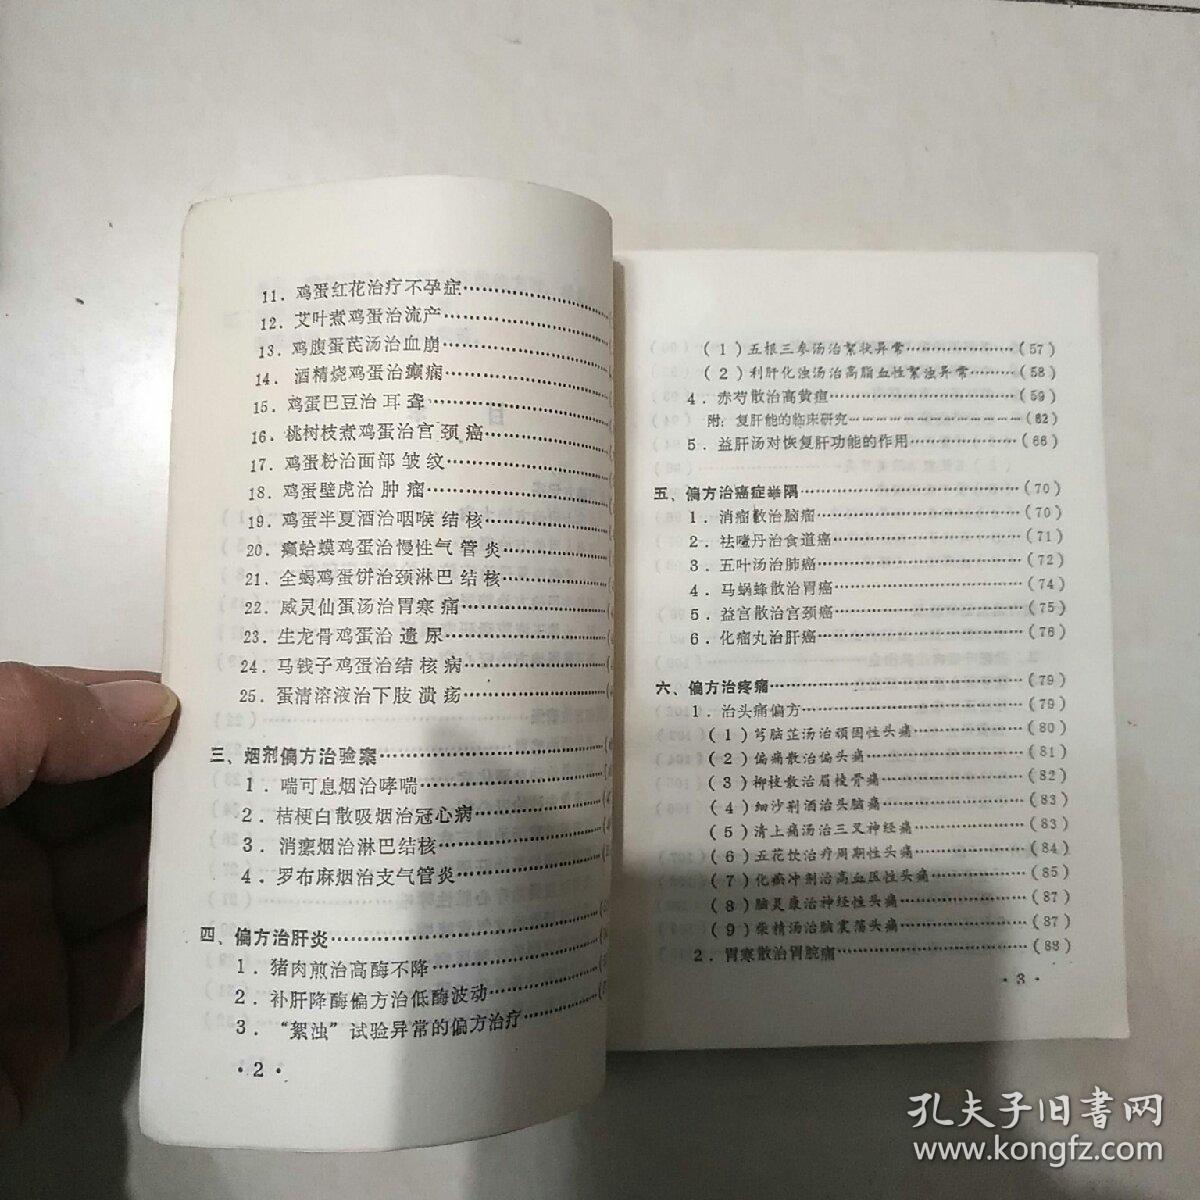 11．鸡蛋红花治疗不孕症
12．艾叶煮鸡蛋治流产
13．鸡腹蛋芪汤治血崩
14．酒精烧鸡蛋治癫痫
15．鸡蛋巴豆治耳聋
16．桃树枝煮鸡蛋治宫颈癌
17．鸡蛋粉治面部皱纹
18．鸡蛋壁虎治肿瘤
19．鸡蛋半夏酒治咽喉结核
20．癞蛤蟆鸡蛋治慢性气管炎
21．全蝎鸡蛋饼治颈淋巴结核
22．威灵仙蛋汤治胃寒痛
23．生龙骨鸡蛋治遗尿
24．马钱子鸡蛋治结核病
25．蛋清溶液治下肢溃疡
三、烟剂偏方治验案
1．喘可息烟治哮喘
2．桔梗白散吸烟治冠心病
3．消瘰烟治淋巴结核
4．罗布麻烟治支气管炎
四、偏方治肝炎
1．猪肉煎治高酶不降
2．补肝降酶偏方治低酶波动
3．“絮浊”试验异常的偏方治疗
·2·
（1）五根三参汤治絮状异常（57）
（2）利肝化浊汤治高脂血性絮浊异常（58）
4．赤芍散治高黄疸（59）
附：复肝能的临床研究（62）
5．益肝汤对恢复肝功能的作用（66）
五、偏方治癌症举隅（70）
1．消瘤散治脑瘤（70）
2．祛噎丹治食道癌（71）
3．五叶汤治肺癌（72）
4．马蜗蜂散治胃癌（74）
5．益宫散治宫颈癌（75）
6．化瘤丸治肝癌（76）
六、偏方治疼痛（79）
1．治头痛偏方（79）
（1）芎脑芷汤治顽固性头痛（80）
（2）偏痛散治偏头痛（81）
（3）柳枝散治眉棱骨痛（82）
（4）细沙荆酒治头脑痛（83）
（5）清上痛汤治三叉神经痛（83）
（6）五花饮治疗周期性头痛（84）
（7）化瘀冲剂治高血压性头痛（85）
（8）脑灵康治神经性头痛（87）
（9）柴精汤治脑震荡头痛（87）
2．胃寒散治胃脘痛（88）
·3·
孔夫子旧书网
www.kongfz.com